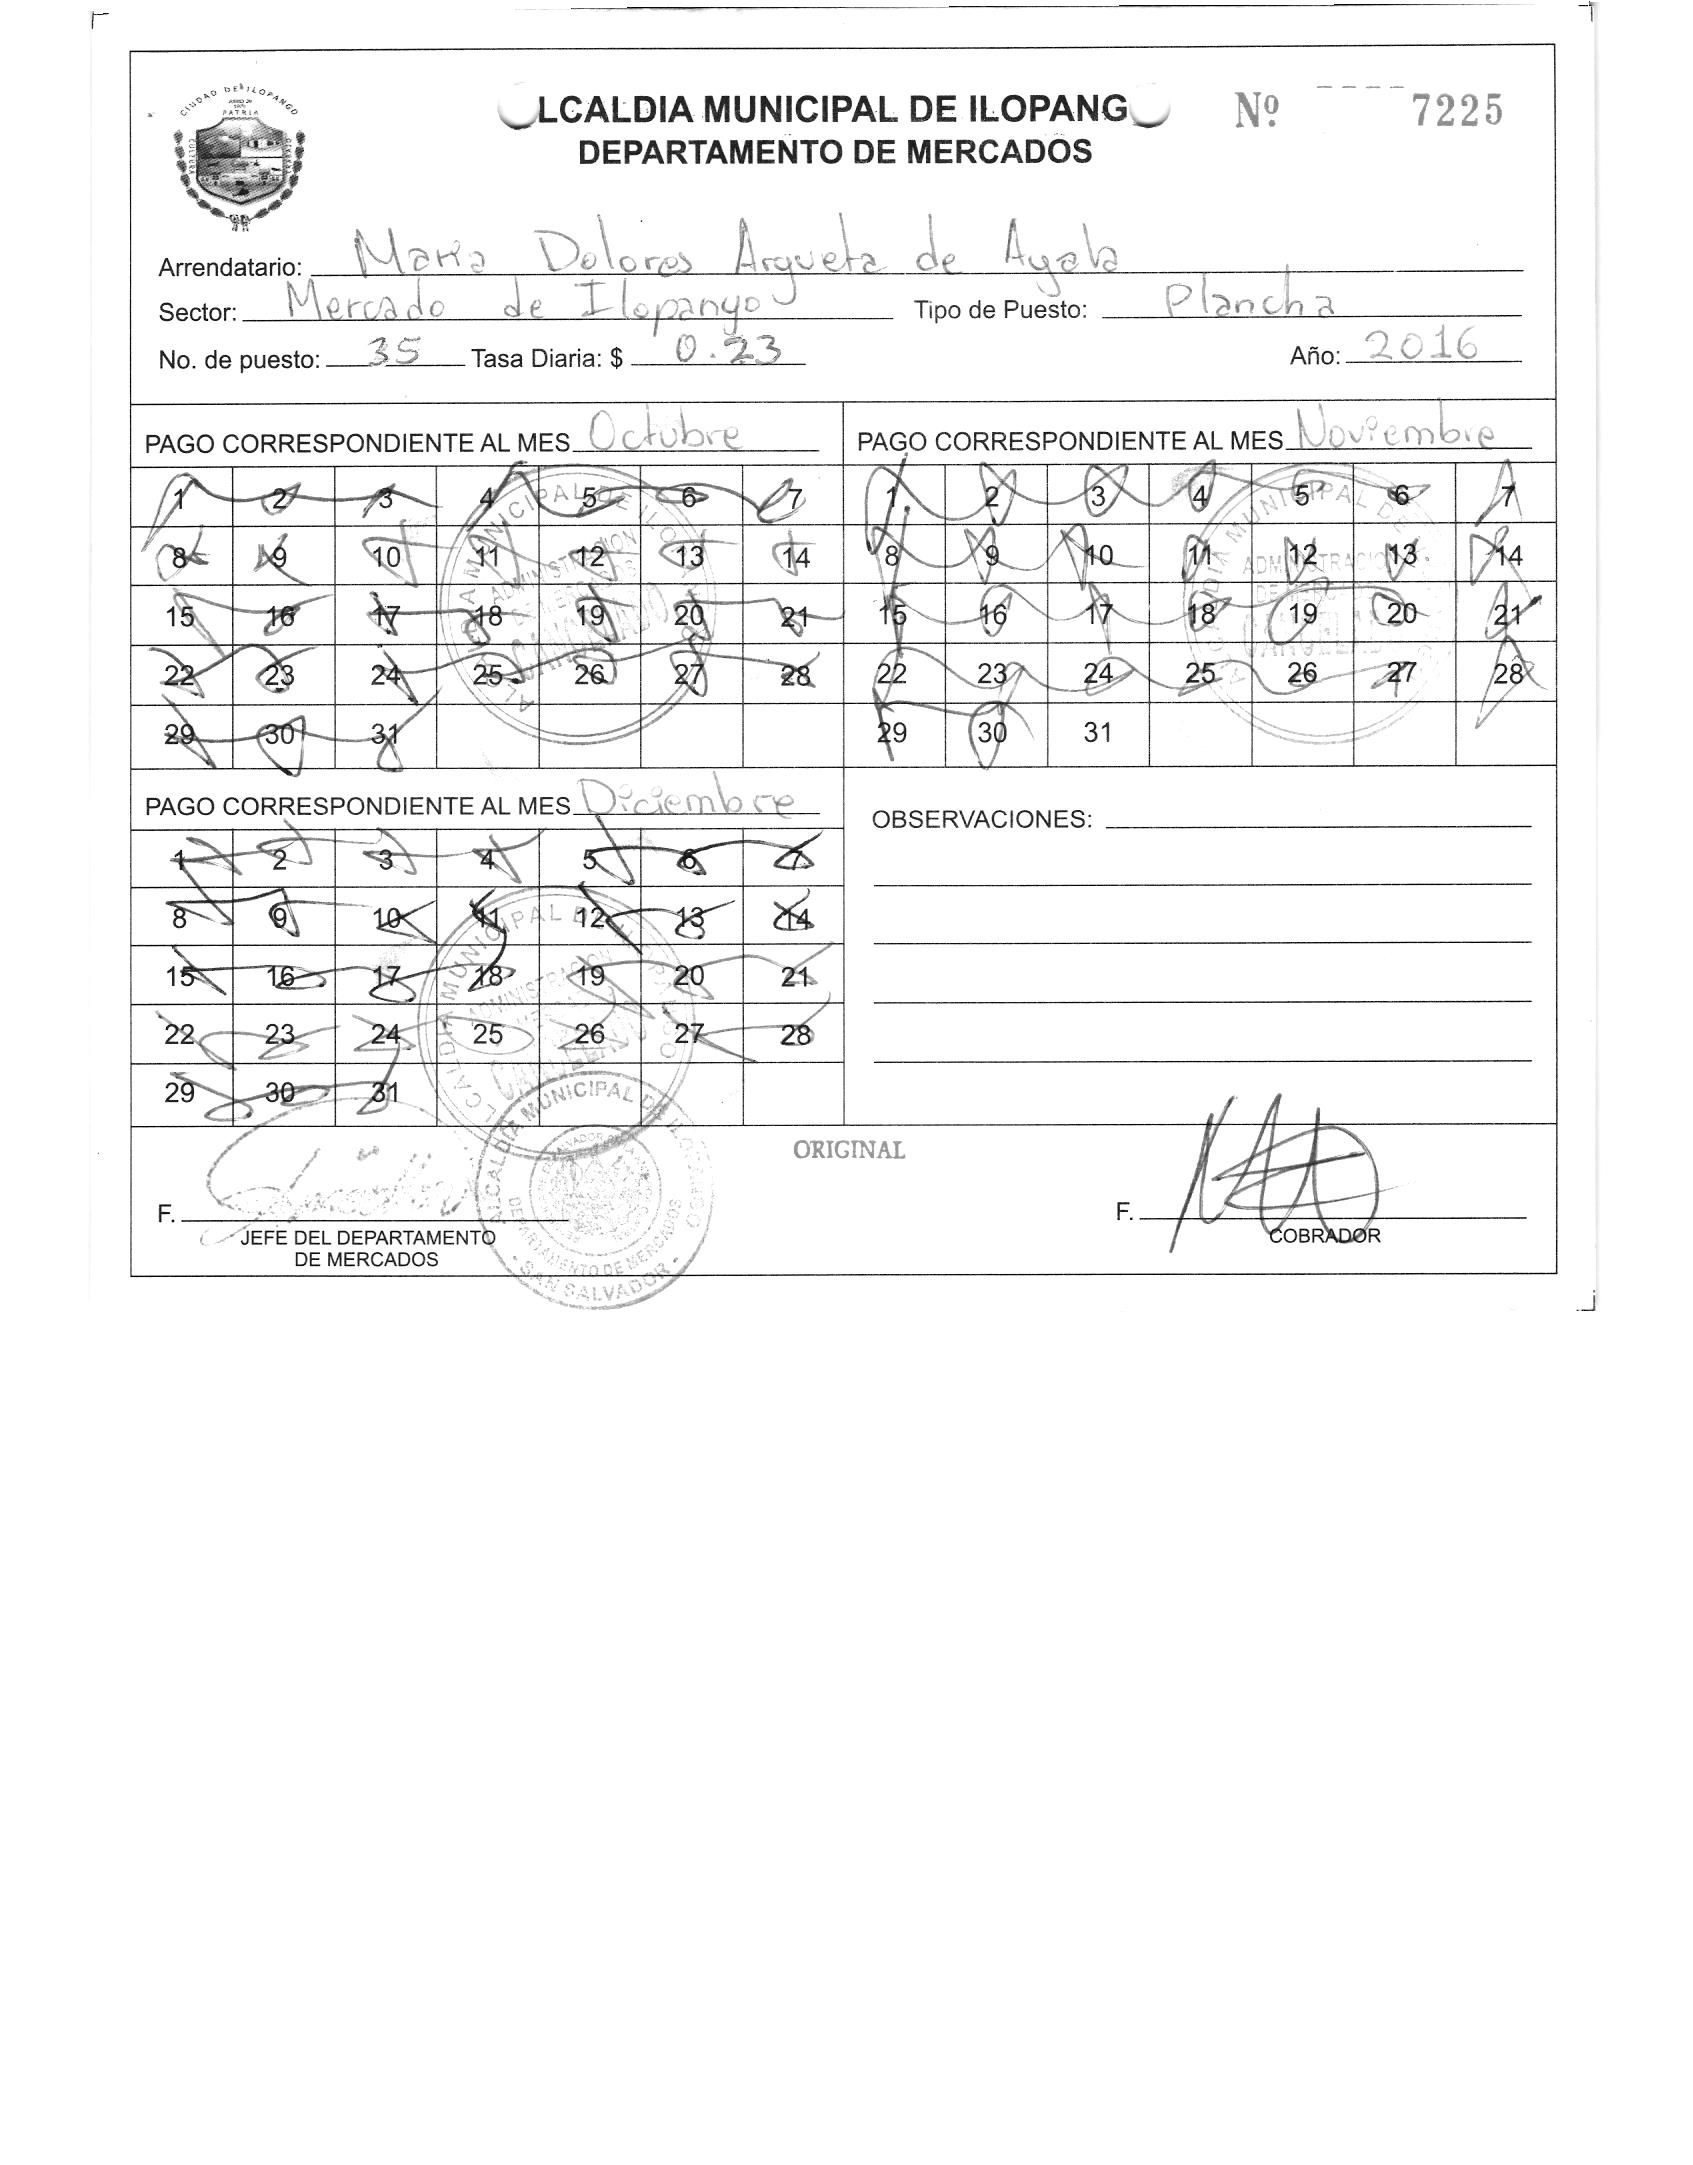 CIUDAD DE ILOPANGO
PATRIA
CULTURA
LCALDIA MUNICIPAL DE ILOPANG
Nº 7225
DEPARTAMENTO DE MERCADOS
Arrendatario: Maria Dolores Argueta de Ayala
Sector: Mercado de Ilopango Tipo de Puesto: Plancha
No. de puesto: 35 Tasa Diaria: $ 0.23 Año: 2016
PAGO CORRESPONDIENTE AL MES Octubre
1 2 3 4 5 6 7
8 9 10 11 12 13 14
15 16 17 18 19 20 21
22 23 24 25 26 27 28
29 30 31
ALCALDIA MUNICIPAL DE ILOPANGO
ADMINISTRACION
DE MERCADOS
CANCELADO
PAGO CORRESPONDIENTE AL MES Noviembre
1 2 3 4 5 6 7
8 9 10 11 12 13 14
15 16 17 18 19 20 21
22 23 24 25 26 27 28
29 30 31
MUNICIPAL DE
ADMINISTRACION
CANCELADO
PAGO CORRESPONDIENTE AL MES Diciembre
1 2 3 4 5 6 7
8 9 10 11 12 13 14
15 16 17 18 19 20 21
22 23 24 25 26 27 28
29 30 31
ALCALDIA MUNICIPAL DE ILOPANGO
ADMINISTRACION
CANCELADO
OBSERVACIONES:
ORIGINAL
F.
JEFE DEL DEPARTAMENTO
DE MERCADOS
ALCALDIA MUNICIPAL DE ILOPANGO
DEPARTAMENTO DE MERCADOS
SAN SALVADOR
F.
COBRADOR